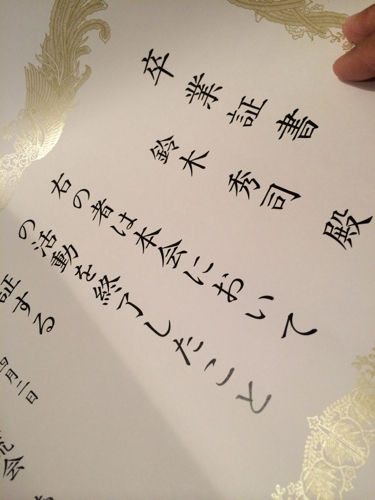 卒業証書
鈴木秀司殿
右の者は本会において
の活動を終了したこと
証する
月二日
会